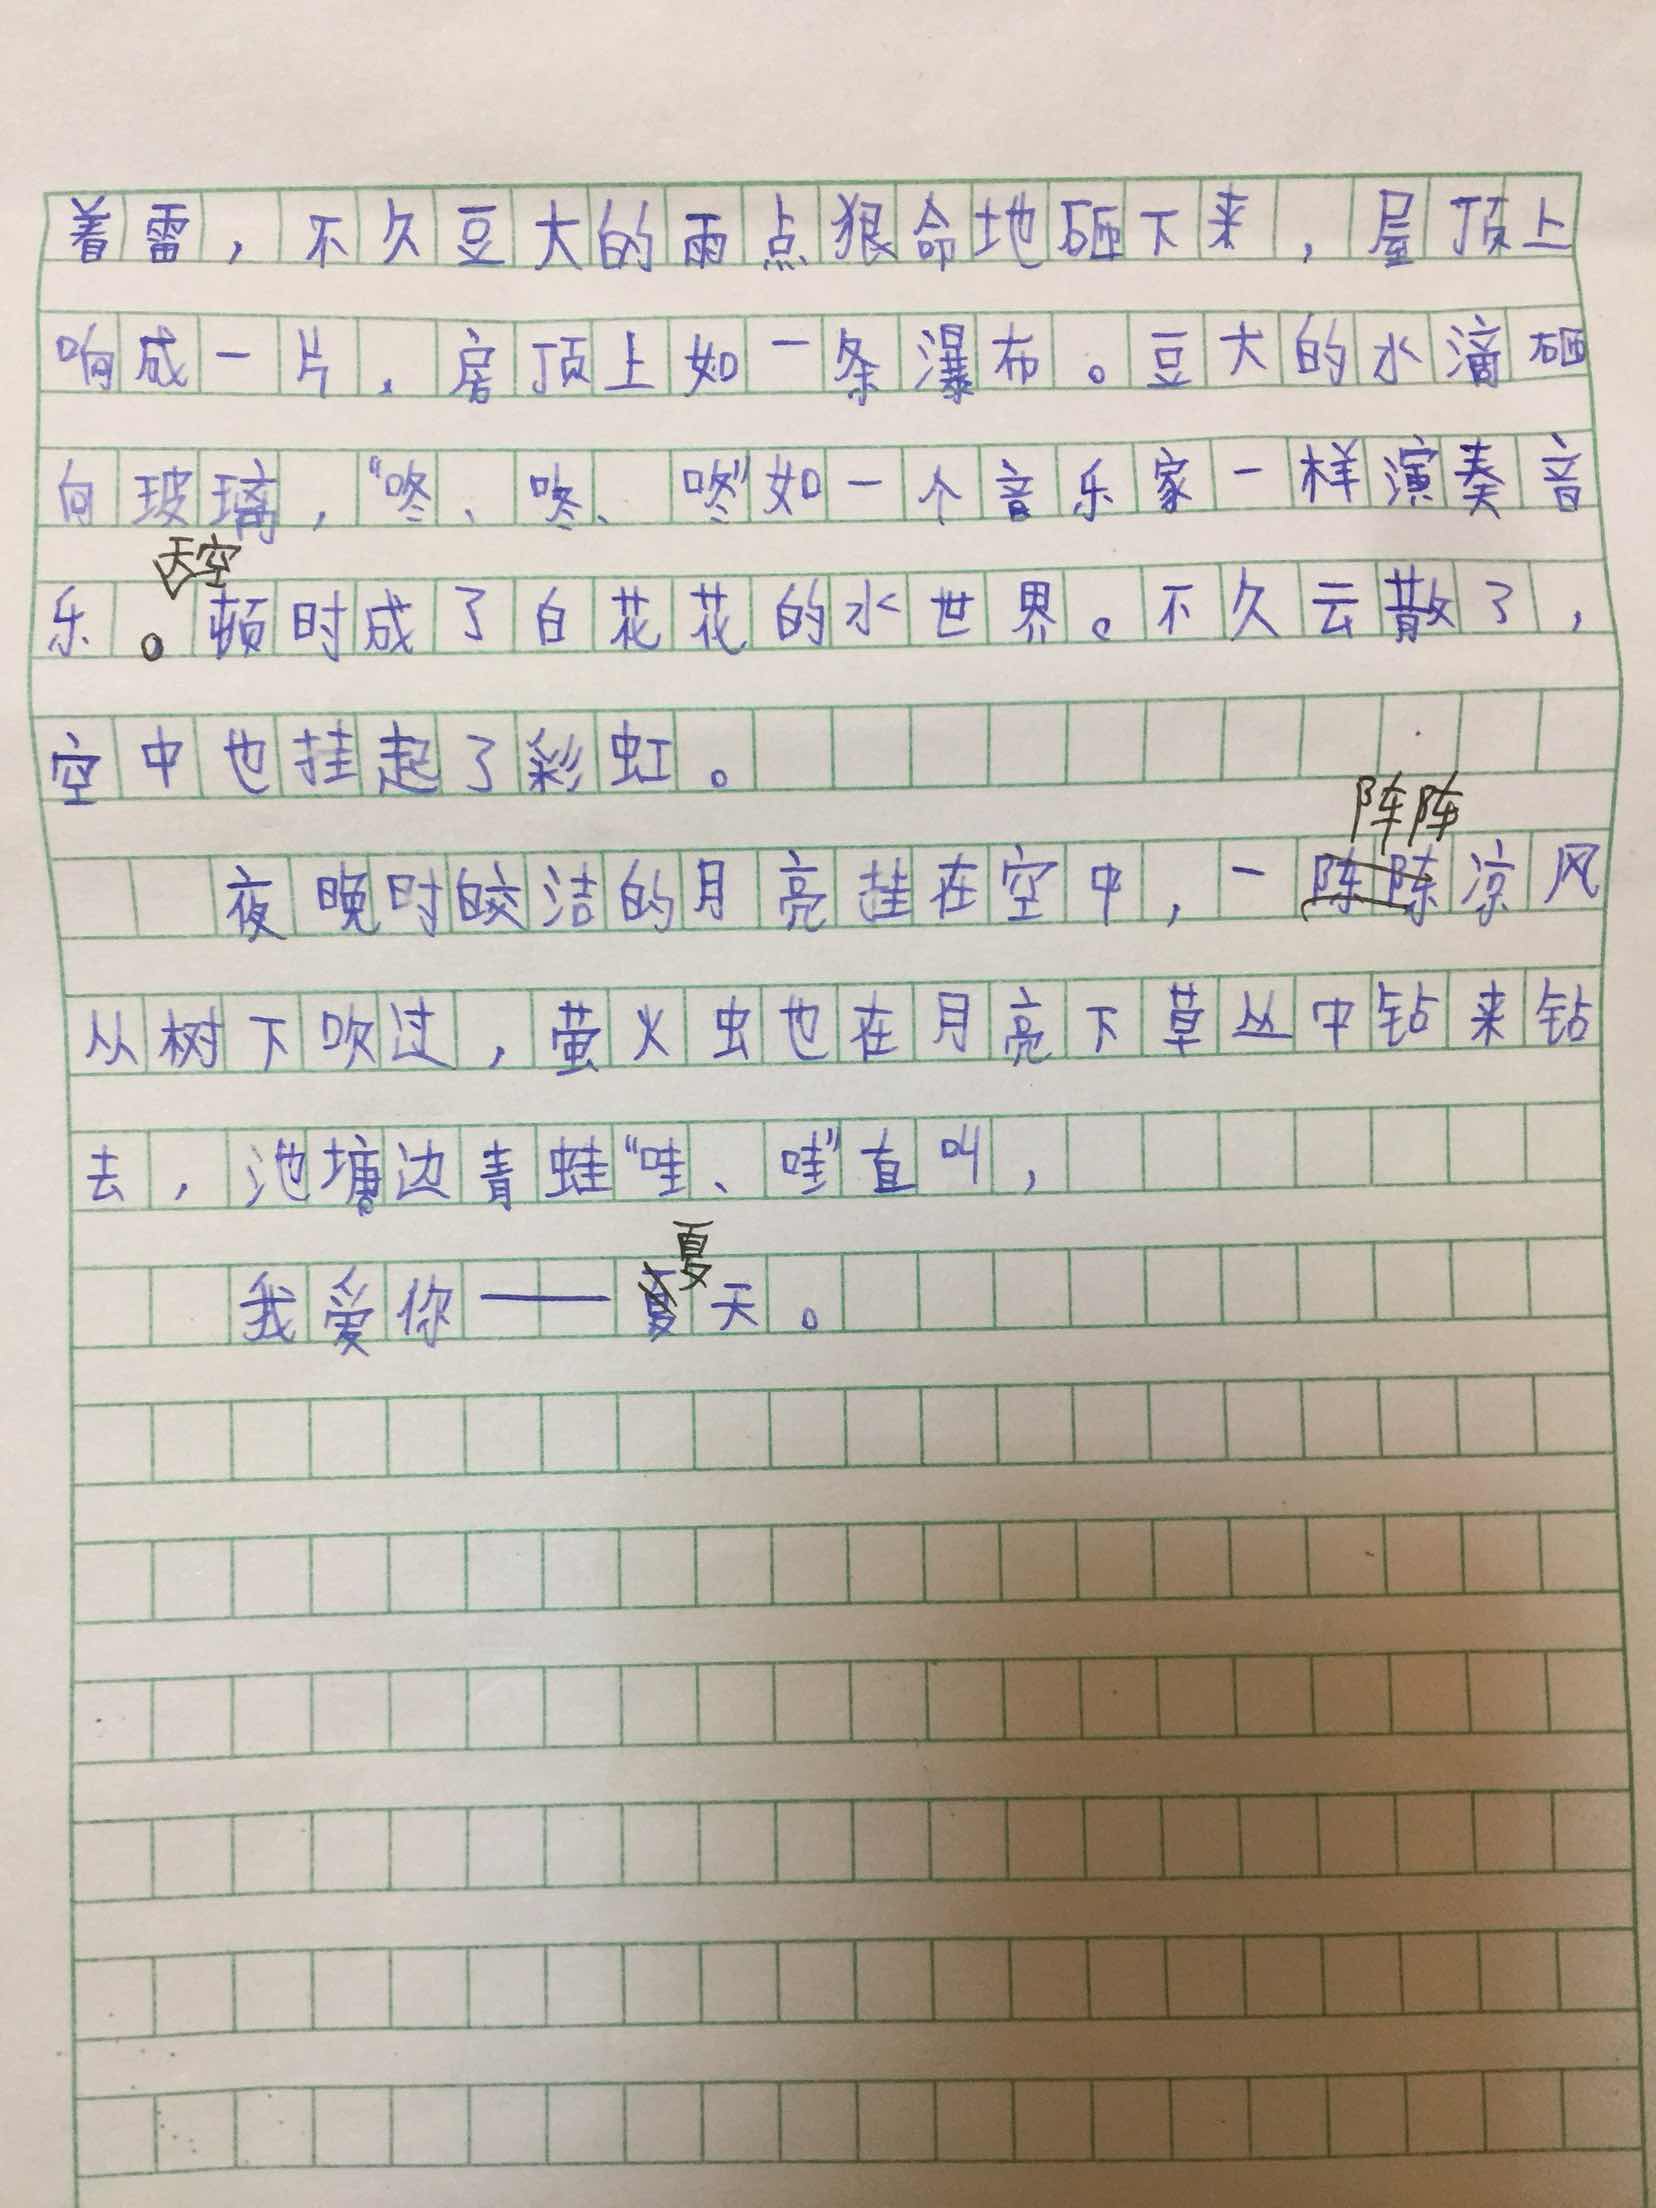 着雷，不久豆大的雨点狠命地砸下来，屋顶上
响成一片，房顶上如一条瀑布。豆大的水滴砸
向玻璃，“咚、咚、咚”如一个音乐家一样演奏音
天空
乐。顿时成了白花花的水世界。不久云散了，
空中也挂起了彩虹。
阵阵
夜晚时皎洁的月亮挂在空中，一陈陈凉风
从树下吹过，萤火虫也在月亮下草丛中钻来钻
去，池塘边青蛙“哇、哇”直叫，
夏
我爱你——夏天。